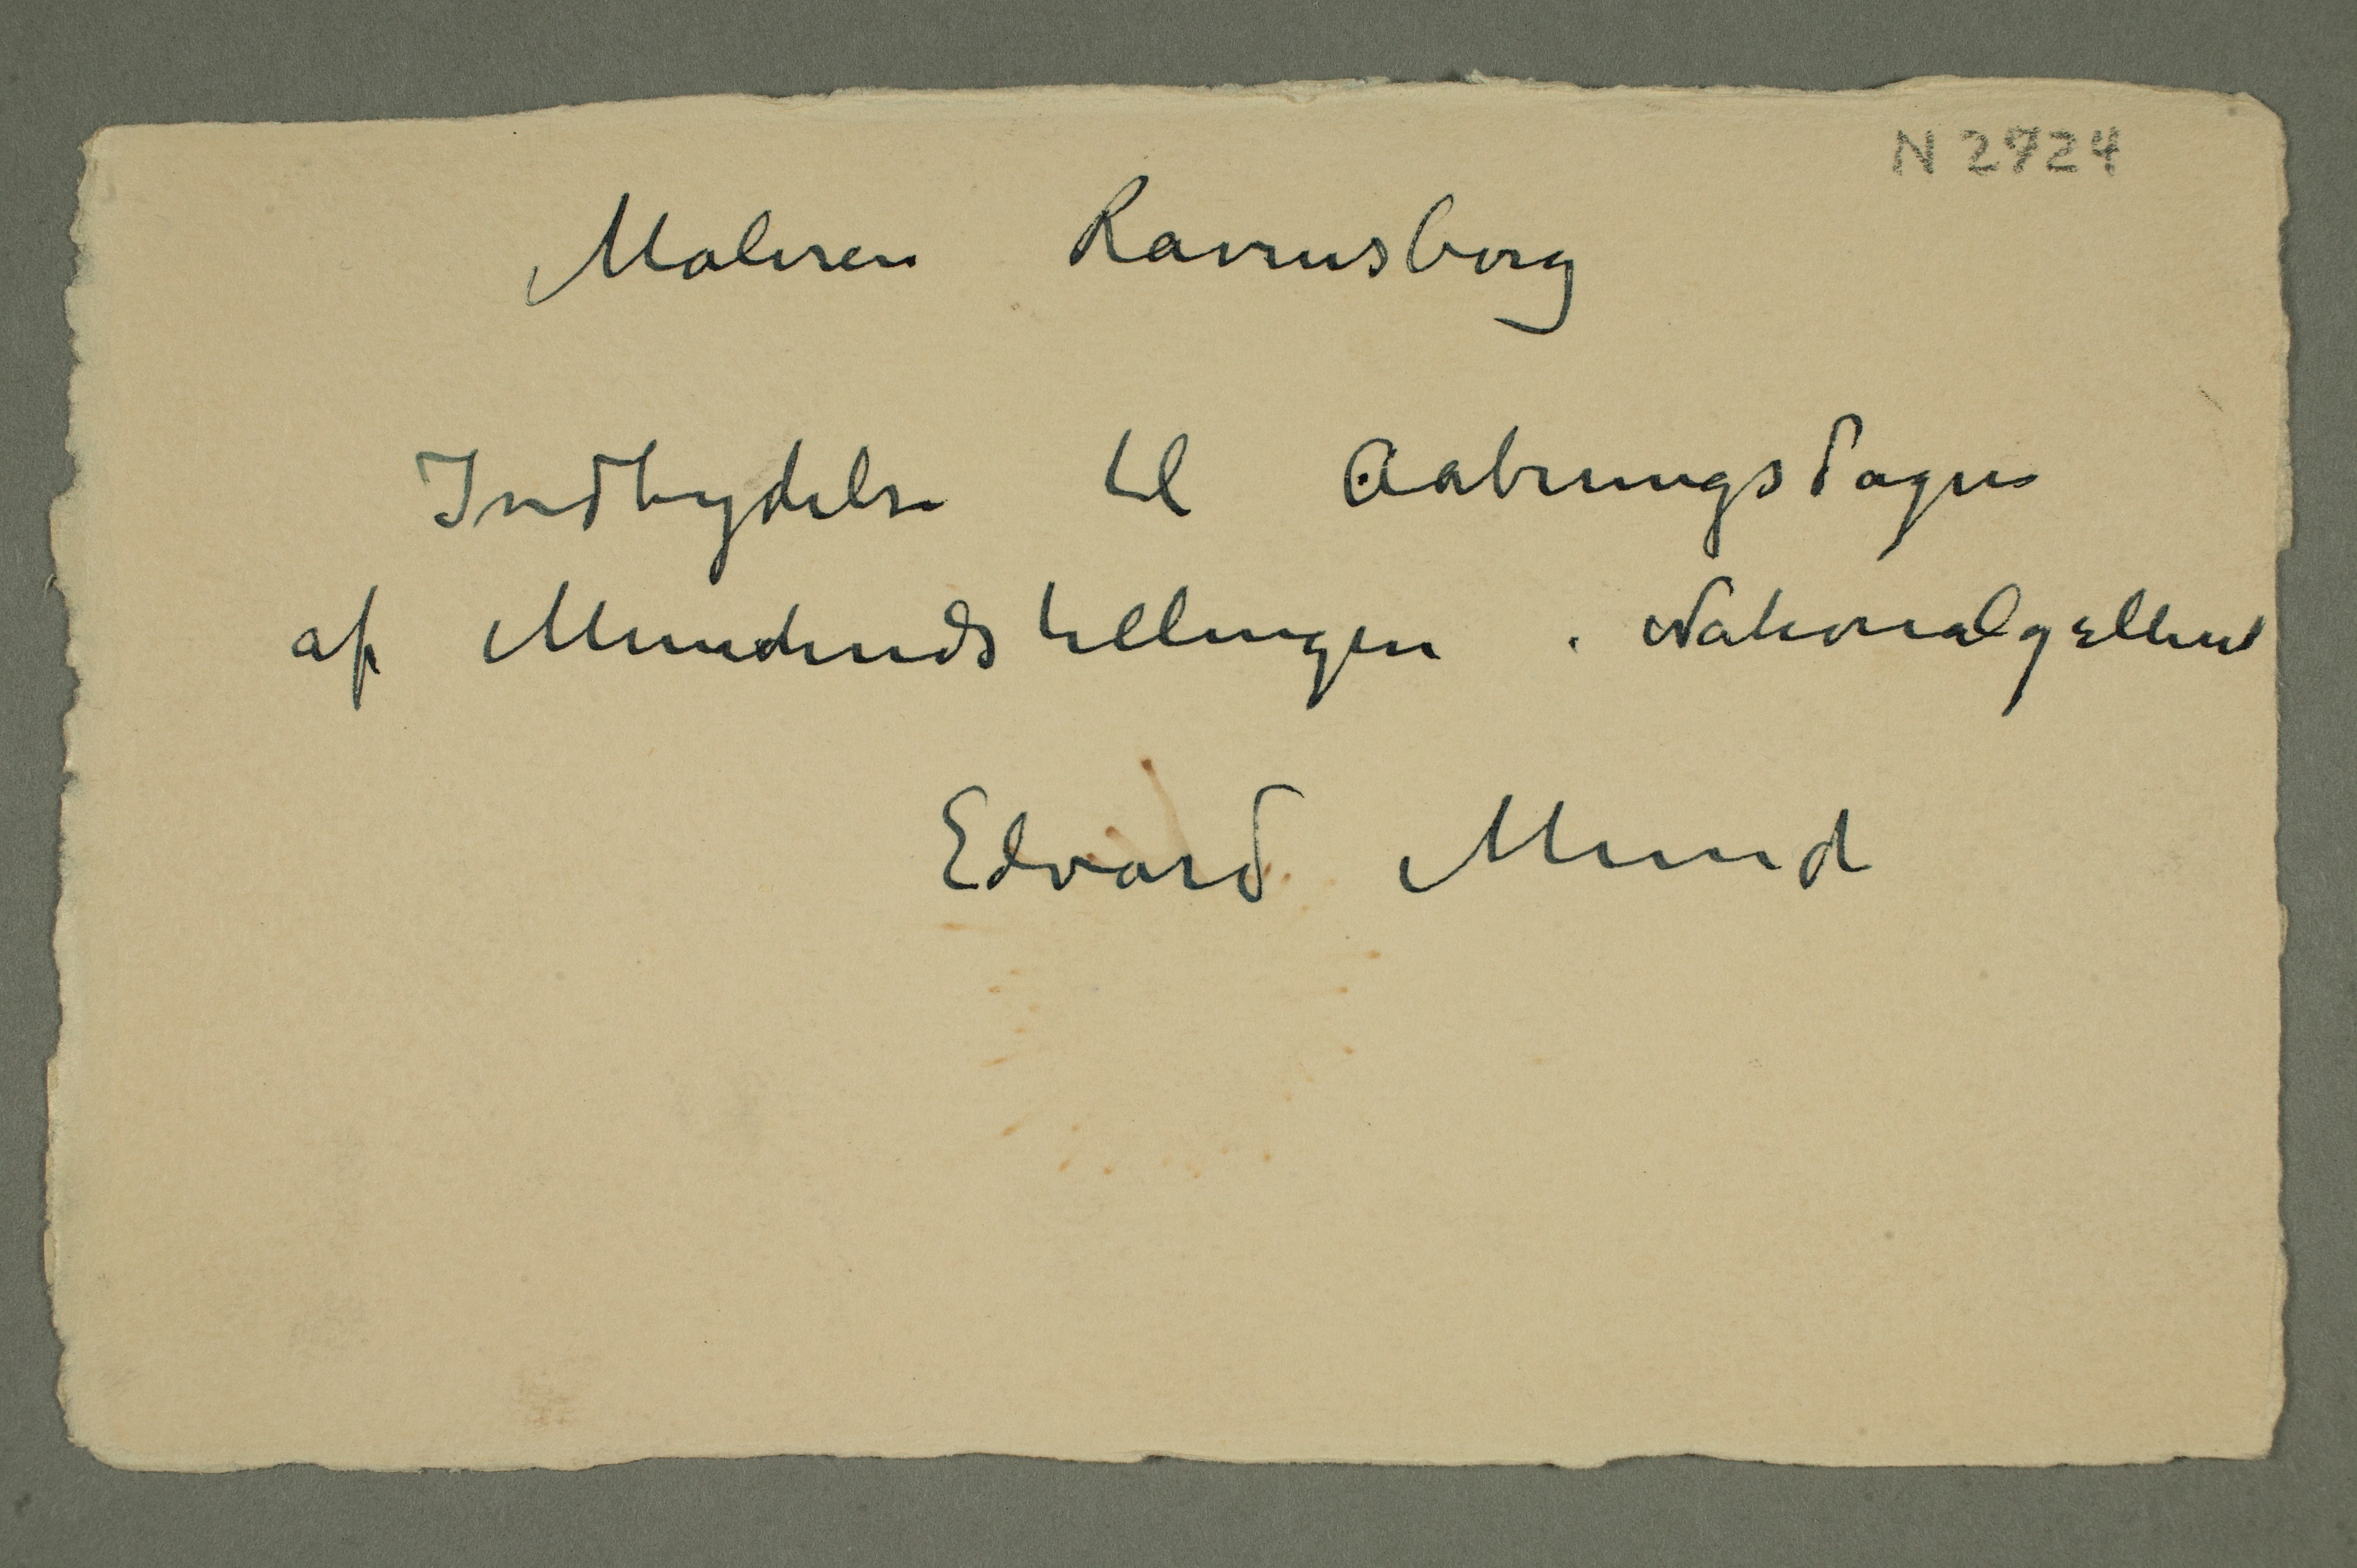 N 2724
Maleren Ravensborg
Indbydelse til Aabningsdagen
af Munchudstillingen i Nationalgalleriet
Edvard Munch